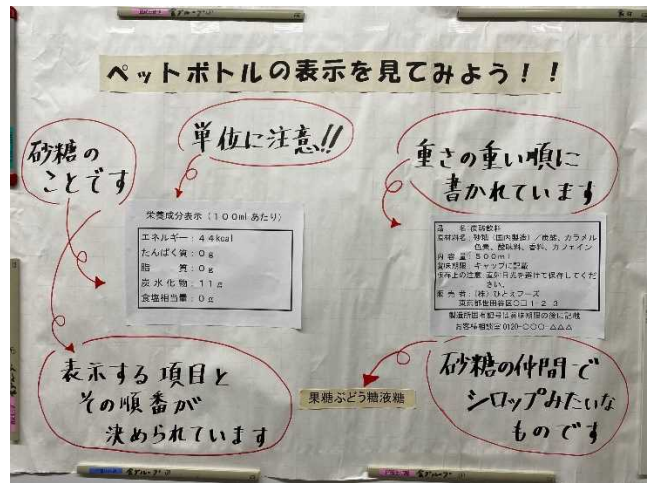 ペットボトルの表示を見てみよう!!
砂糖の
ことです
単位に注意!!
重さの重い順に
書かれています
栄養成分表示(100mlあたり)
エネルギー:44kcal
たんぱく質:0g
脂 質:0g
炭水化物:11g
食塩相当量:0g
品 名:炭酸飲料
原材料名:砂糖(国内製造)/炭酸、カラメル
色素、酸味料、香料、カフェイン
内容量:500ml
賞味期限:キャップに記載
保存上の注意:直射日光を避けて保存してくだ
さい。
販売者:(株)ひとえフーズ
東京都世田谷区〇口1-2-3
製造所固有記号は賞味期限の後に記載
お客様相談室0120-〇〇〇-△△△
表示する項目と
その順番が
決められています
果糖ぶどう糖液糖
砂糖の仲間で
シロップみたいな
ものです